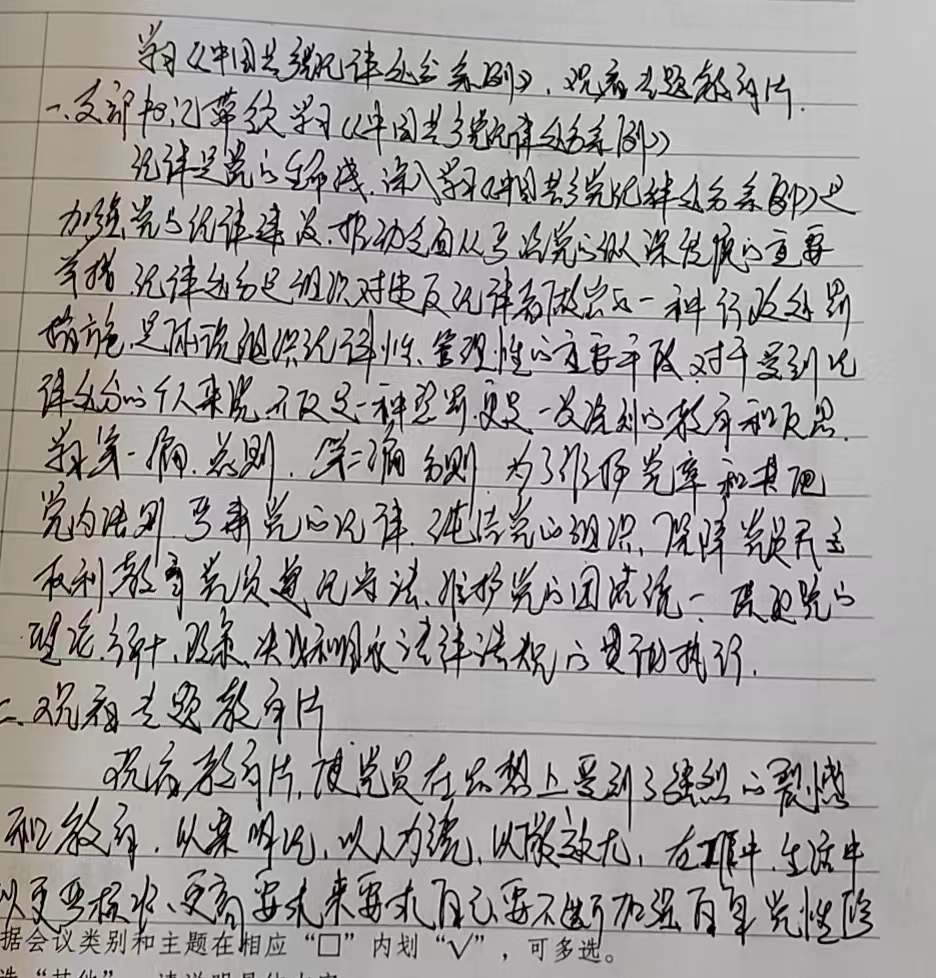 学习《中国共产党纪律处分条例》,观看专题教育片.
一、支部书记带领学习《中国共产党纪律处分条例》
纪律是党的生命线,深入学习《中国共产党纪律处分条例》是
加强党的纪律建设、推动全面从严治党向纵深发展的重要
举措,纪律处分是组织对违反纪律者做出的一种行政处罚
措施,是体现组织纪律性、管理性的重要手段,对于受到纪
律处分的个人来说,不仅是一种惩罚,更是一次深刻的教育和反思.
学习第一编,总则,第二编分则,为了维护党章和其他
党内法规,严肃党的纪律,纯洁党的组织,保障党员民主
权利,教育党员遵纪守法,维护党的团结统一,保证党的
理论、路线、政策、决议和国家法律法规的贯彻执行.
二、观看专题教育片
观看教育片,使党员在思想上受到了强烈的震撼
和教育,以案明纪,以人为镜,以儆效尤,在工作中、生活中
以更严标准、更高要求来要求自己,要不断加强自身党性修
据会议类别和主题在相应“□”内划“√”,可多选。